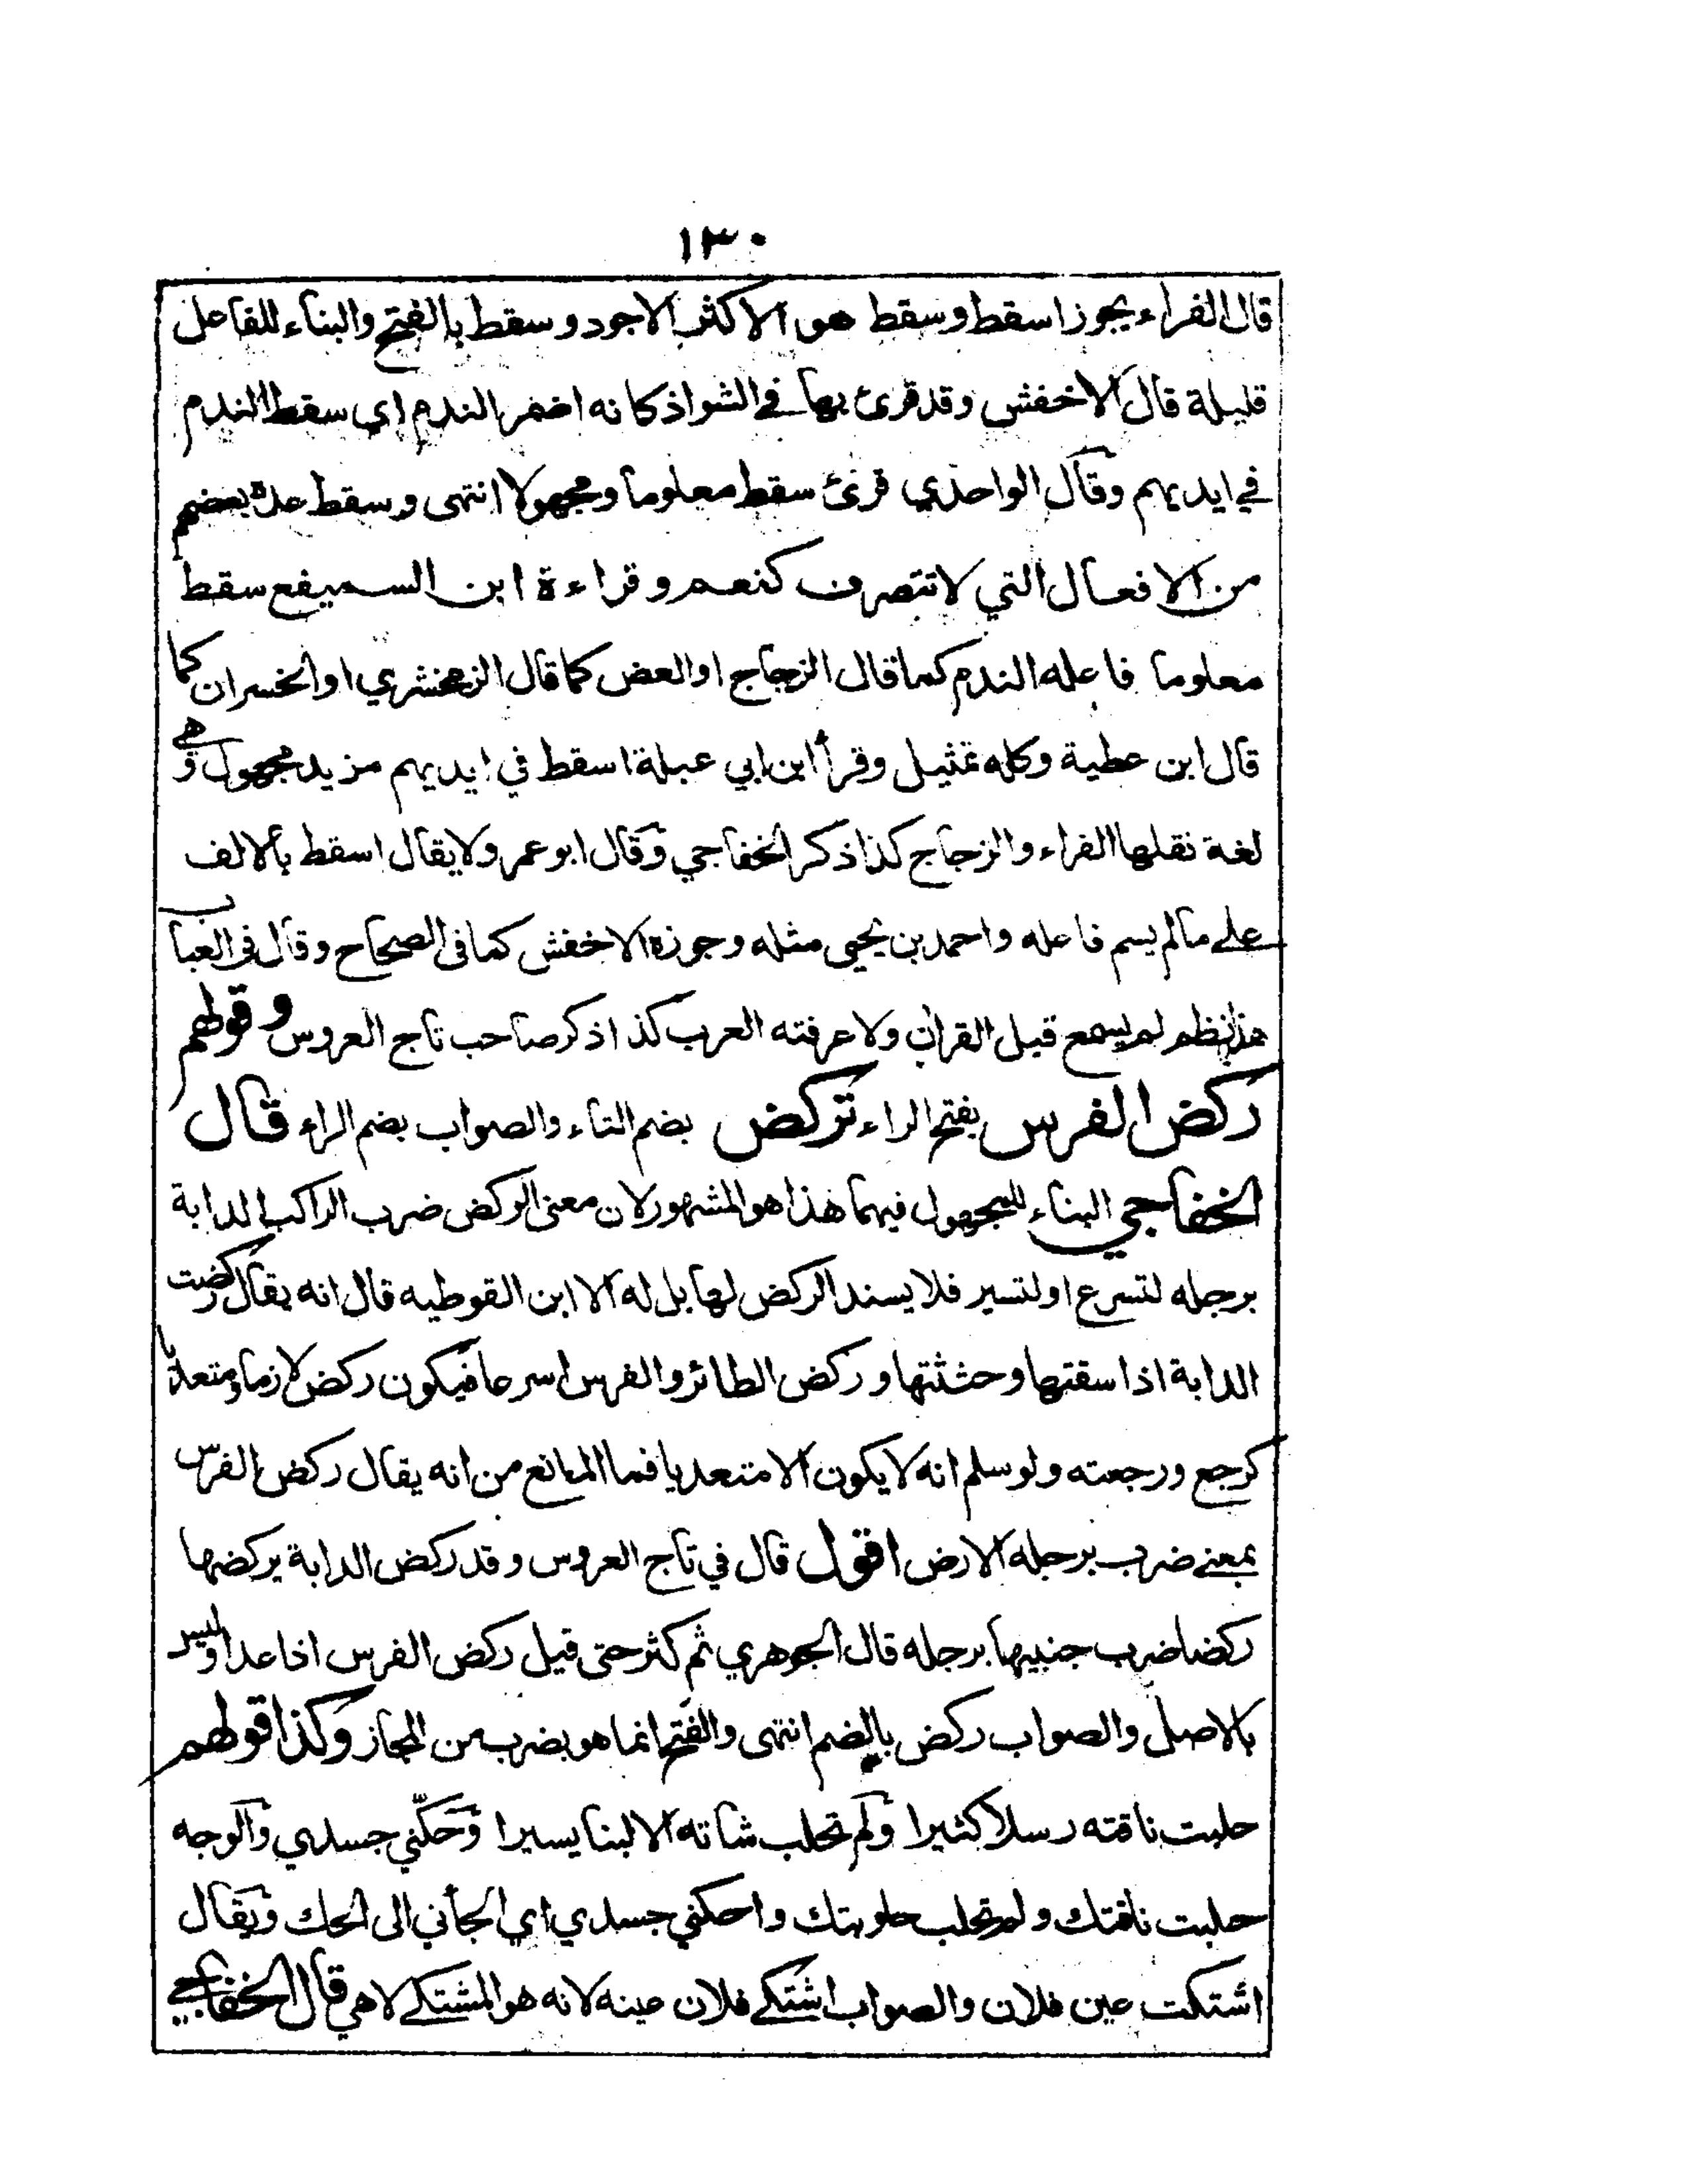 ١٣٠
قال الفراء يجوز اسقط وسقط هو الاكثر الاجود وسقط بالفتح والبناء للفاعل
قليلة قال الاخفش وقد قرئ بها في الشواذ كانه اضمر الندم اي سقط الندم
في ايديهم وقال الواحدي قرئ سقط معلوما ومجهولا انتهى وسقط عده بعضهم
من الافعال التي لا تتصرف كنعم وقراءة ابن السميفع سقط
معلوما فاعله الندم كما قال الزجاج او العض كما قال الزمخشري او الخسران كما
قال ابن عطية وكله تمثيل وقرأ ابن ابي عبلة اسقط في ايديهم مزيد مجهول وهي
لغة نقلها الفراء والزجاج كذا ذكر الخفاجي وقال ابو عمرو لا يقال اسقط بالالف
على ما لم يسم فاعله واحمد بن يحيى مثله وجوزه الاخفش كما في الصحاح وقال في العباب
هذا نظم لم يسمع قبل القران ولا عرفته العرب كذا ذكر صاحب تاج العروس وقولهم
ركض الفرس بفتح الراء تركض بضم التاء والصواب بضم الراء قال
الخفاجي البناء للمجهول فيهما هذا هو المشهور لان معنى الركض ضرب الراكب الدابة
برجله لتسرع او لتسير فلا يسند الركض لها بل له الا ابن القوطيه قال انه يقال ركضت
الدابة اذا سقتها وحثثتها وركض الطائر والفرس اسرعا فيكون ركض لازما ومتعديا
كرجع ورجعته ولو سلم انه لا يكون الا متعديا فما المانع من انه يقال ركض الفرس
بمعنى ضرب برجله الارض اقول قال في تاج العروس وقد ركض الدابة يركضها
ركضا ضرب جنبيها برجله قال الجوهري ثم كثر حتى قيل ركض الفرس اذا عدا وليس
بالاصل والصواب ركض بالضم انتهى والفتح انما هو بضرب من المجاز وكذا قولهم
حلبت ناقته رسلا كثيرا ولم تحلب شاته الا لبنا يسيرا وحكّني جسدي والوجه
حلبت ناقتك ولم تحلب حلوبتك واحكني جسدي اي الجأني الى الحك ويقال
اشتكت عين فلان والصواب اشتكى فلان عينه لانه هو المشتكي لا هي قال الخفاجي